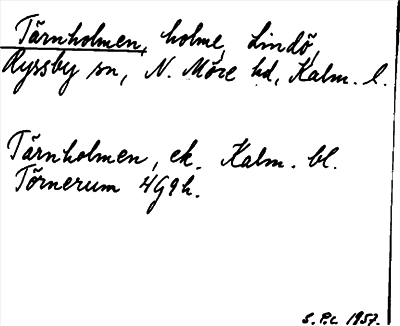 Tärnholmen, holme, Lindö,
Ryssby sn, N. Möre hd, Kalm. l.
Tärnholmen, ek. Kalm. bl.
Törnerum 4G9h.
S. P:L 1957.